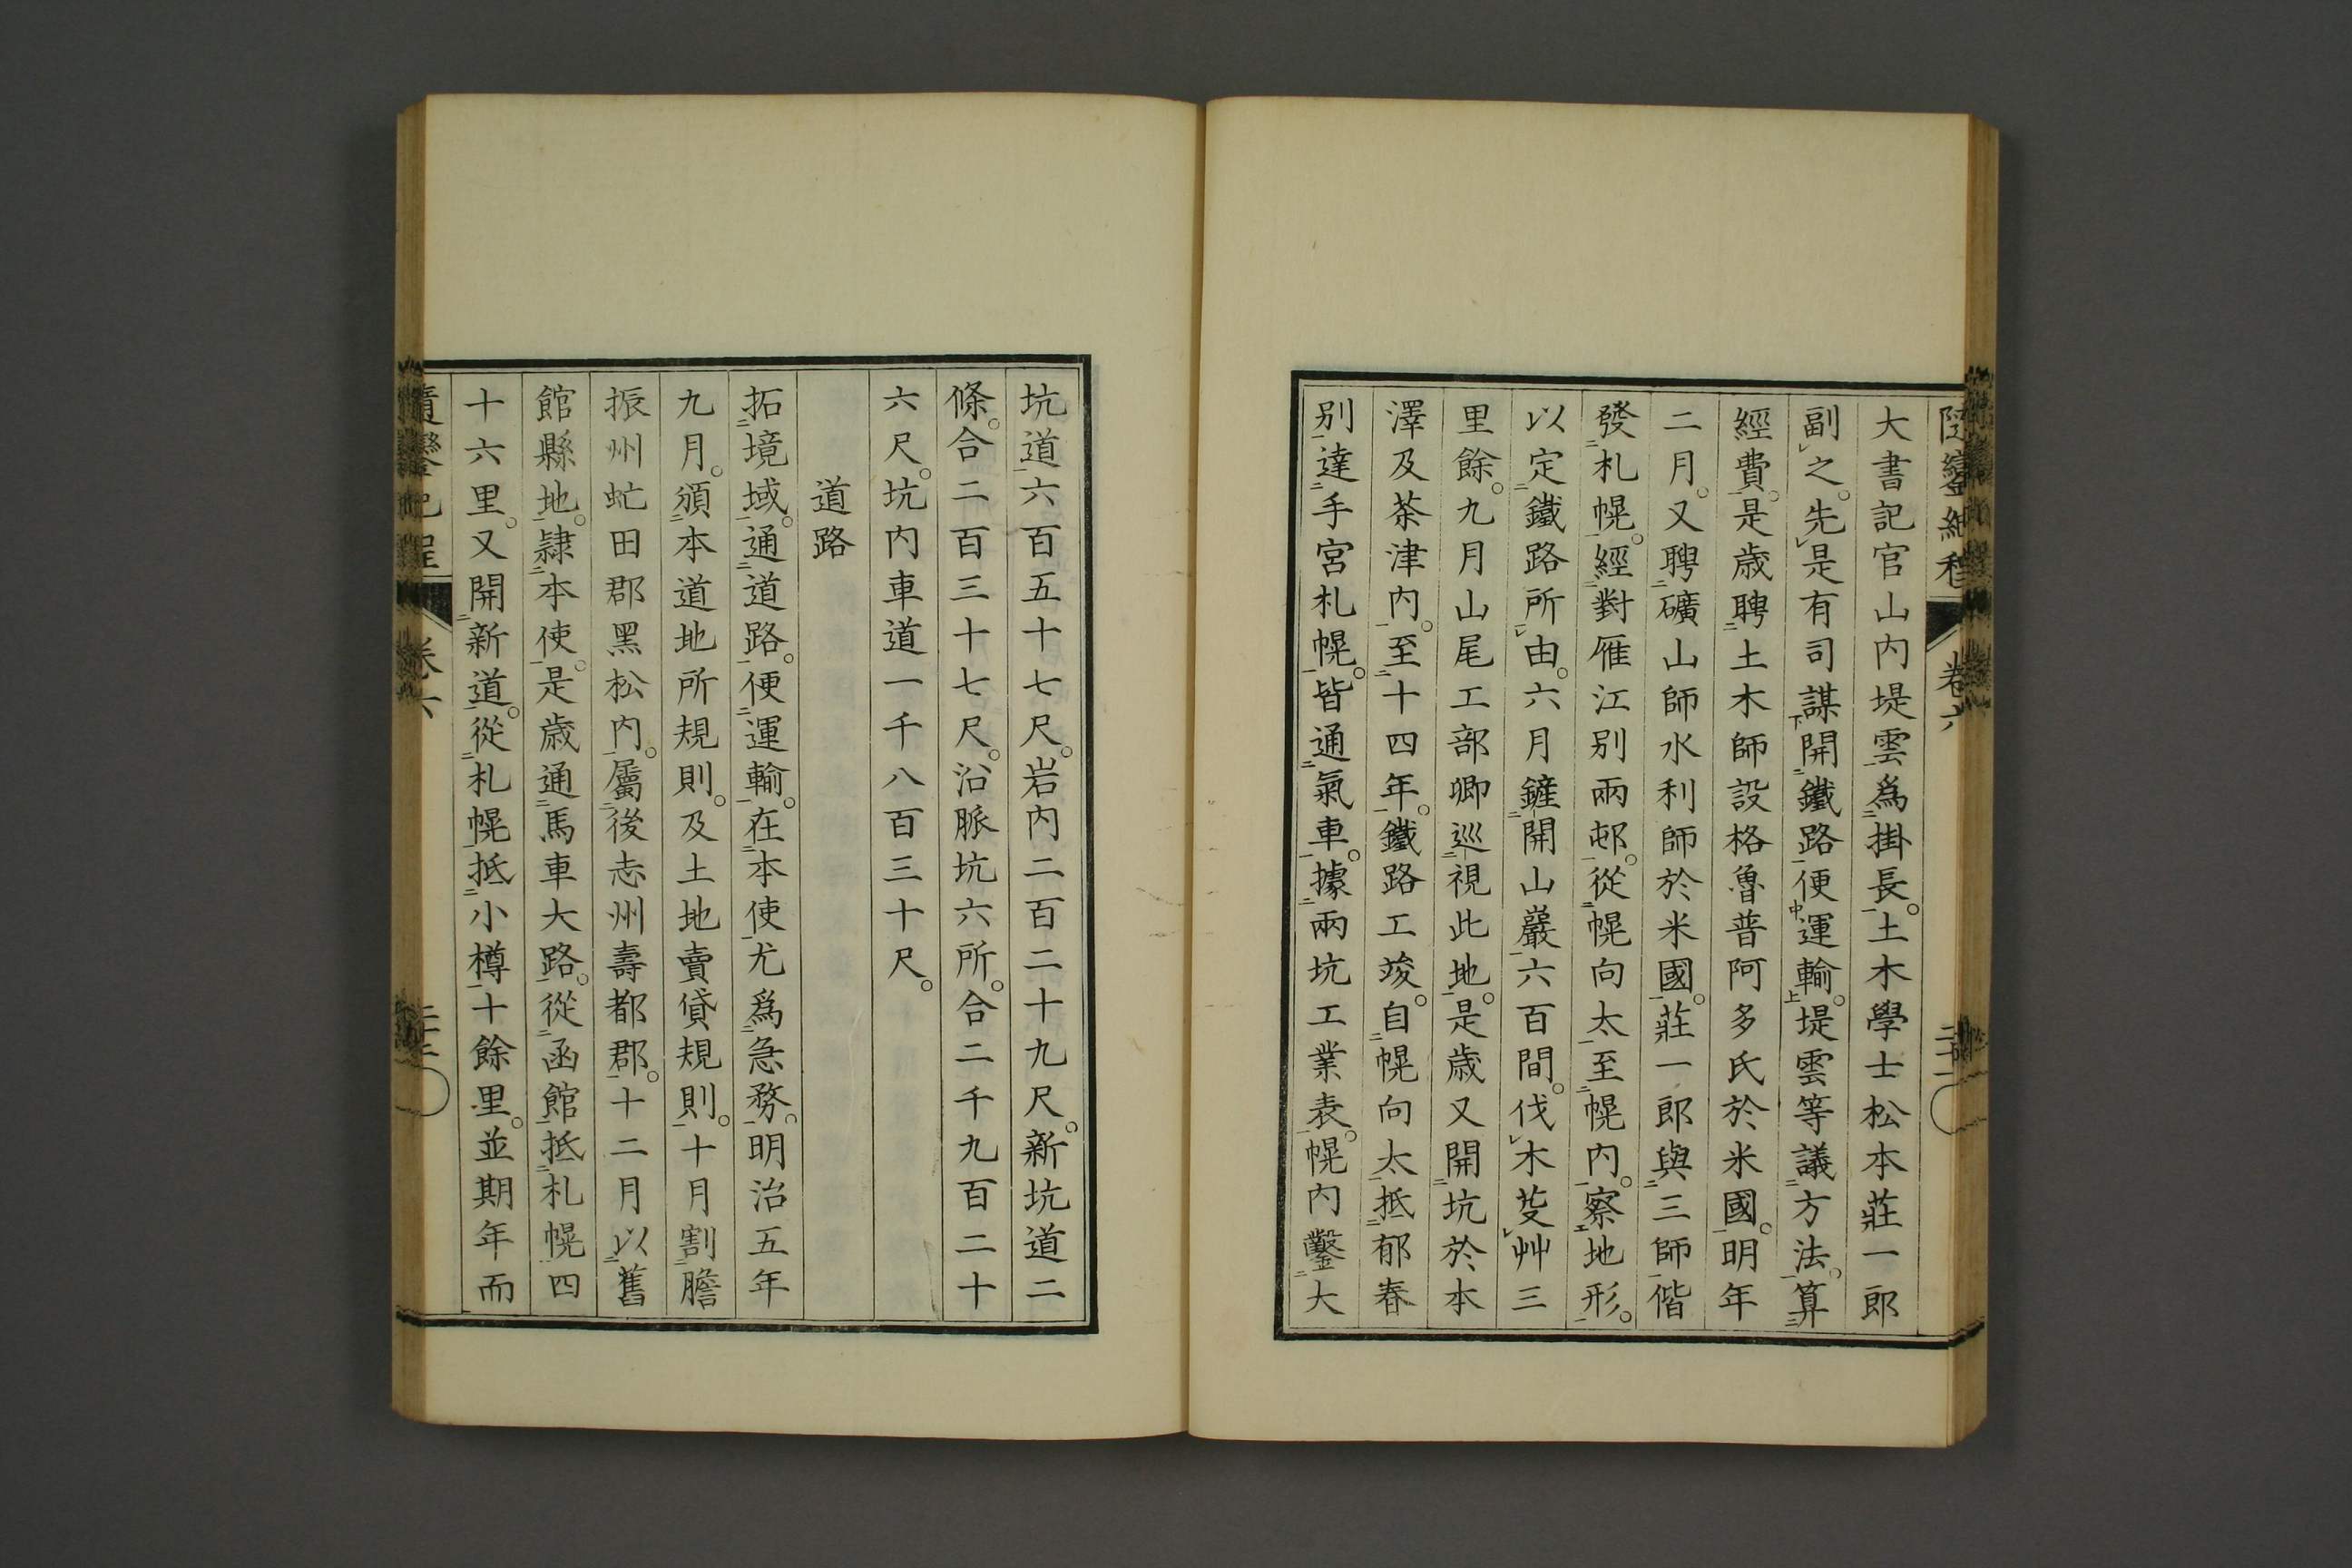 大書記官山内堤雲爲掛長。土木學士松本莊一郎
副之。先是有司謀開鐵路便運輸。堤雲等議方法。算
經費。是歳聘土木師設格魯普阿多氏於米國。明年
二月。又聘礦山師水利師於米國。莊一郎與三師偕
發札幌。經對雁江別兩邨。從幌向太至幌内。察地形。
以定鐵路所由。六月鏟開山巖六百間。伐木芟艸三
里餘。九月山尾工部卿巡視此地。是歳又開坑於本
澤及茶津内。至十四年。鐵路工竣。自幌向太抵郁春
別達手宮札幌。皆通氣車。據兩坑工業表。幌内鑿大
坑道六百五十七尺。岩内二百二十九尺。新坑道二
條。合二百三十七尺。沿脈坑六所。合二千九百二十
六尺。坑内車道一千八百三十尺。
道路
拓境域。通道路。便運輸。在本使尤爲急務。明治五年
九月。頒本道地所規則。及土地賣貸規則。十月割膽
振州虻田郡黑松内。屬後志州壽都郡。十二月以舊
館縣地。隷本使。是歳通馬車大路。從函館抵札幌四
十六里。又開新道。從札幌抵小樽十餘里。並期年而
卷六